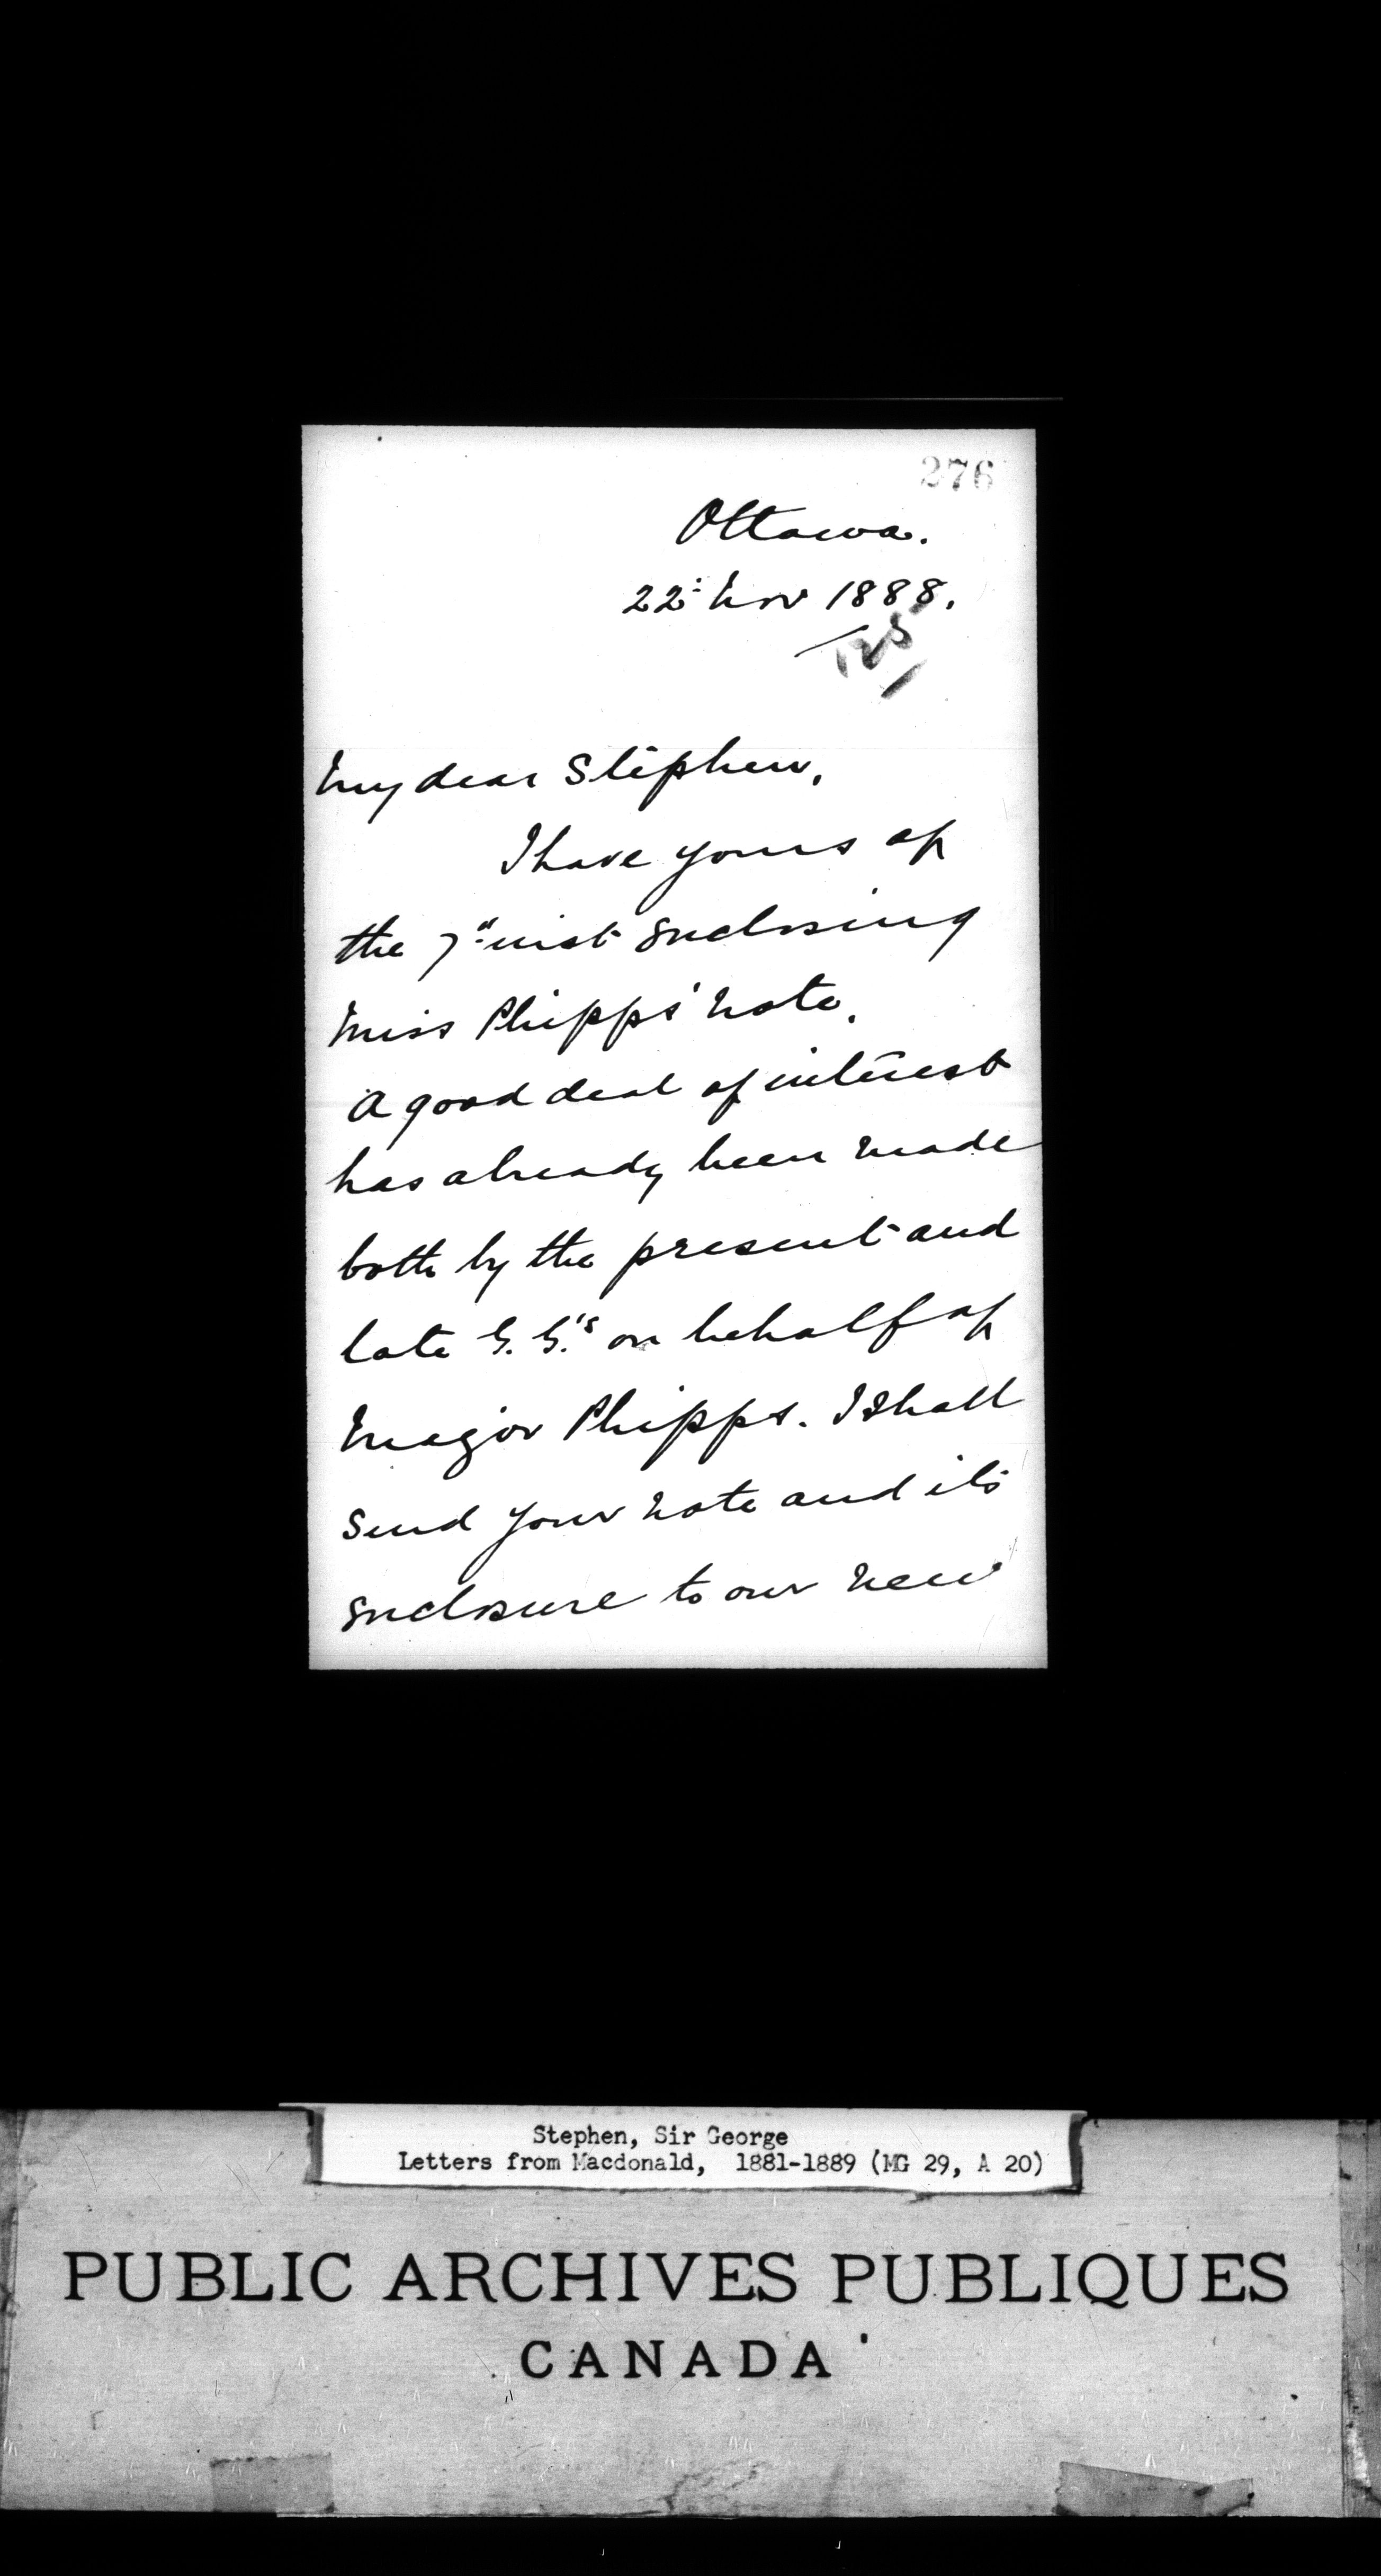 276
Ottawa.
22: Nov 1888.
125
My dear Stephen,
I have yours of
the 7" inst enclosing
Miss Phipps' note.
A good deal of interest
has already been made
both by the present and
late G. G.'s on behalf of
Major Phipps. I shall
send your note and its
enclosure to our new
Stephen, Sir George
Letters from Macdonald, 1881-1889 (MG 29, A 20)
PUBLIC ARCHIVES PUBLIQUES
CANADA